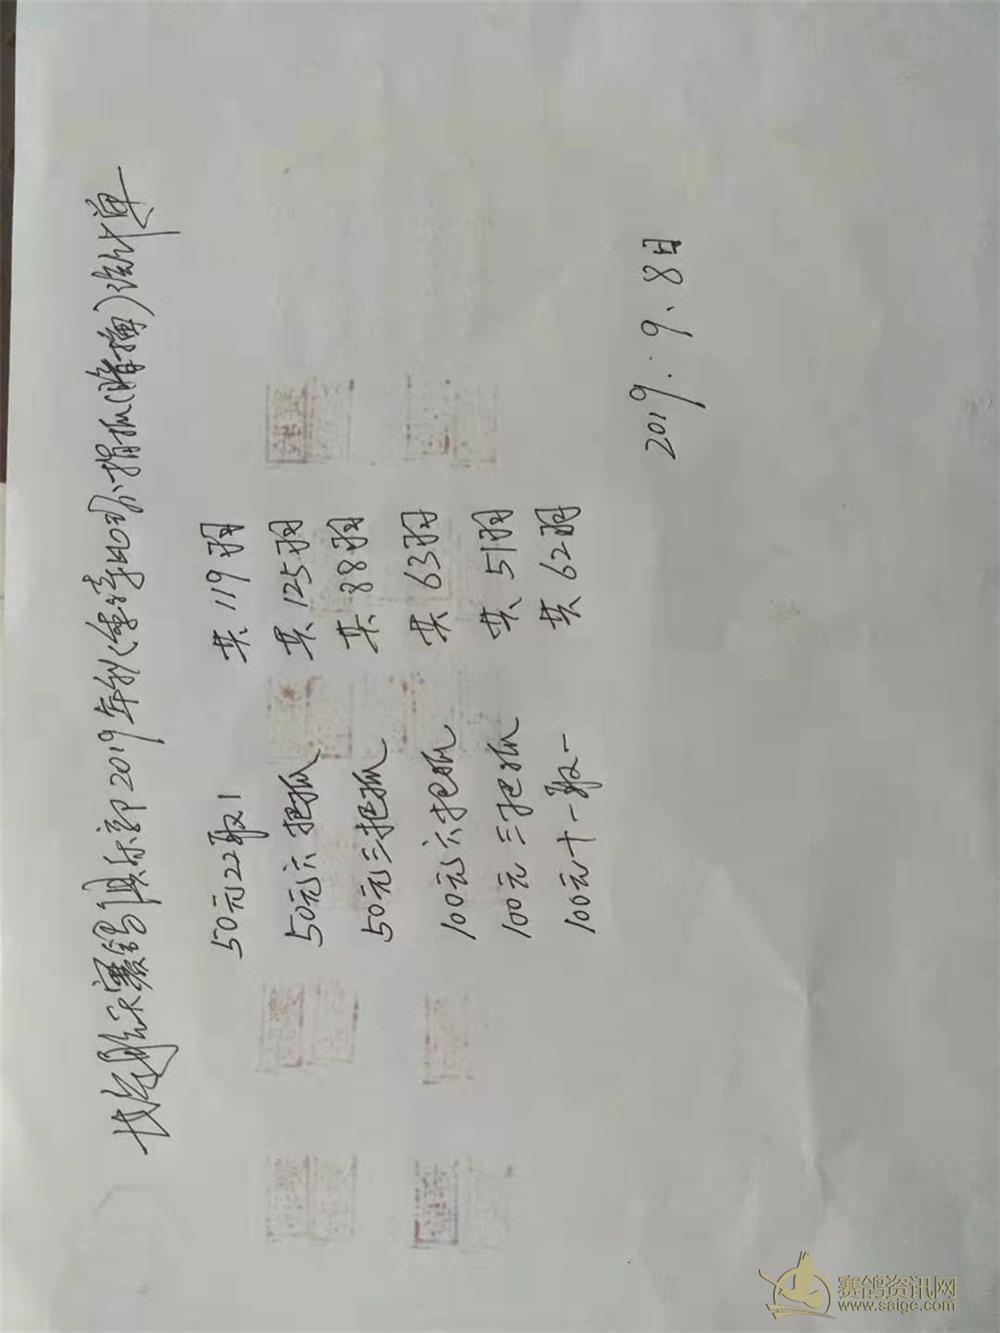 赛鸽俱乐部2019年秋季 指孤(暗插)统计单
50元22取1 共119羽
50元六把孤 共125羽
50元三把孤 共88羽
100元六把孤 共63羽
100元三把孤 共51羽
100元十一取一 共62羽
2019.9.8日
赛鸽资讯网
www.saige.com